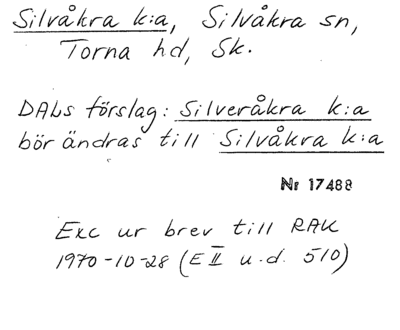 Silvåkra k:a, Silvåkra sn,
Torna hd, Sk.
DALs förslag: Silveråkra k:a
bör ändras till Silvåkra k:a
Nr 17488
Exc ur brev till RAK
1970-10-28 (E II u.d. 510)